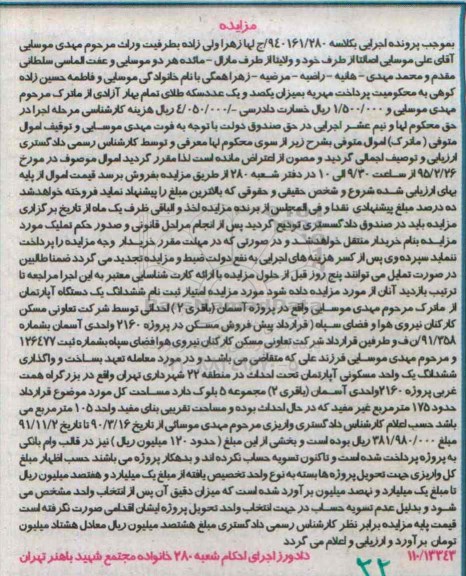 مزایده
بموجب پرونده اجرایی بکلاسه ۹۴۰۱۶۱/۲۸۰/ج لها زهرا ولی زاده بطرفیت وراث مرحوم مهدی موسایی
آقای علی موسایی اصالتا از طرف خود و ولایتا از طرف مارال - مائده هر دو موسایی و عفت الماسی سلطانی
مقدم و محمد مهدی - هانیه - راضیه - مرضیه - زهرا همگی با نام خانوادگی موسایی و فاطمه حسین زاده
کوهی به محکومیت پرداخت مهریه بمیزان یکصد و یک عدد سکه طلای تمام بهار آزادی از ماترک مرحوم
مهدی موسایی و ۱/۵۰۰/۰۰۰ ریال خسارت دادرسی -/۴/۰۵۰/۰۰۰ ریال هزینه کارشناسی مرحله اجرا در
حق محکوم لها و نیم عشر اجرایی در حق صندوق دولت با توجه به فوت مهدی موسایی و توقیف اموال
متوفی (ماترک) اموال متوفی بشرح زیر از سوی محکوم لها معرفی و توسط کارشناس رسمی دادگستری
ارزیابی و توصیف اجمالی گردید و مصون از اعتراض مانده است لذا مقرر گردید اموال موصوف در مورخ
۹۵/۲/۲۶ از ساعت ۹/۳۰ الی ۱۰ در دفتر شعبه ۲۸۰ از طریق مزایده بفروش برسد قیمت اموال از پایه
بهای ارزیابی شده شروع و شخص حقیقی و حقوقی که بالاترین مبلغ را پیشنهاد نماید فروخته خواهد شد
ده درصد مبلغ پیشنهادی نقدا و فی المجلس از برنده مزایده اخذ و الباقی ظرف یک ماه از تاریخ برگزاری
مزایده باید در صندوق دادگستری تودیع گردید پس از انجام مراحل قانونی و صدور حکم تملیک مورد
مزایده بنام خریدار منتقل خواهد شد و در صورتی که در مهلت مقرر خریدار وجه مزایده را پرداخت
ننماید سپرده وی پس از کسر هزینه های اجرایی به نفع دولت ضبط و مزایده تجدید می گردد ضمنا طالبین
در صورت تمایل می توانند پنج روز قبل از حلول مزایده با ارائه کارت شناسایی معتبر به این اجرا مراجعه تا
ترتیب بازدید آنان از مورد مزایده داده شود مورد مزایده امتیاز ثبت نام ششدانگ یک دستگاه آپارتمان
از ماترک مرحوم مهدی موسایی واقع در پروژه آسمان (باقری ۲) احداثی توسط شرکت تعاونی مسکن
کارکنان نیروی هوا و فضای سپاه (قرارداد پیش فروش مسکن در پروژه ۲۱۶۰ واحدی آسمان بشماره
۹۱/۳۵۸/ن ف و طرفین قرارداد شرکت تعاونی مسکن کارکنان نیروی هوا فضای سپاه بشماره ثبت ۱۲۶۴۷۷
و مرحوم مهدی موسایی فرزند علی که متقاضی می باشد و در مورد معامله تعهد بساخت و واگذاری
ششدانگ یک واحد مسکونی آپارتمان تحت احداث در منطقه ۲۲ شهرداری تهران واقع در بزرگراه همت
غربی پروژه ۲۱۶۰ واحدی آسمان (باقری ۲) مجموعه ۵ بلوک دارد مساحت کل مورد موضوع قرارداد
حدود ۱۷۵ مترمربع غیر مفید که در حال احداث بوده و مساحت تقریبی بنای مفید واحد ۱۰۵ مترمربع می
باشد حسب اعلام کارشناس دادگستری واریزی مرحوم مهدی موسائی از تاریخ ۹۰/۳/۱۶ تا تاریخ ۹۱/۱۱/۲
مبلغ ۳۸۱/۹۸۰/۰۰۰ ریال بوده است و بخشی از این مبلغ (حدود ۱۲۰ میلیون ریال) نیز در قالب وام بانکی
به پروژه پرداخت شده است و تاکنون تسویه حساب نکرده اند و بدهکار پروژه می باشند حسب اظهار مبلغ
کل واریزی جهت تحویل پروژه ها بسته به نوع واحد تخصیص یافته از مبلغ یک میلیارد و هفتصد میلیون ریال
تا مبلغ یک میلیارد و نهصد میلیون برآورد شده است که میزان دقیق آن پس از انتخاب واحد مشخص می
شود و بدلیل عدم تسویه حساب در جهت انتخاب واحد تحویل پروژه ایشان اقدامی صورت نگرفته است
قیمت پایه مزایده برابر نظر کارشناس رسمی دادگستری مبلغ هشتصد میلیون ریال معادل هشتاد میلیون
تومان برآورد و ارزیابی و اعلام می گردد
۱۱۰/۱۳۳۴۳ دادورز اجرای احکام شعبه ۲۸۰ خانواده مجتمع شهید باهنر تهران
۲۲